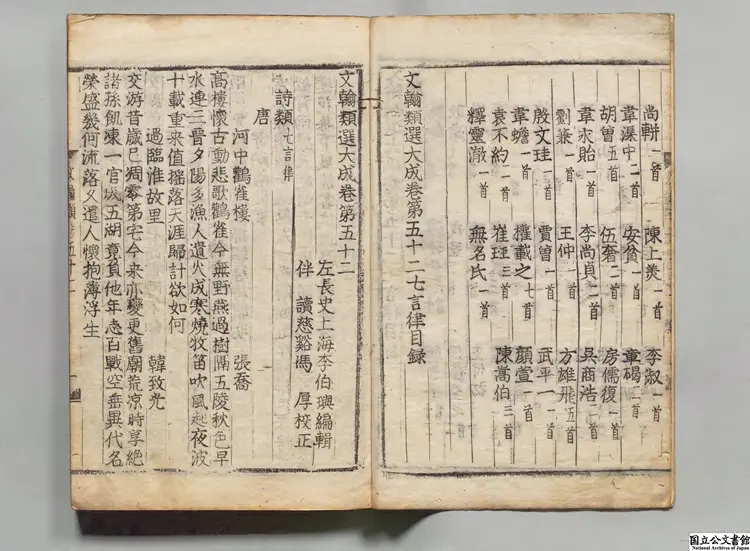 尚軿 一首 陳上羙 一首 李淑 一首
韋渠中 二首 安貧 一首 章碣 一首
胡曾 五首 伍奢 二首 房儒復 一首
韋永貽 一首 李尚貞 二首 吳商浩 一首
劉兼 一首 王仲 一首 方雄飛 五首
殷文珪 一首 賈曾 一首 武平一 一首
韋蟾 一首 權載之 七首 顔萱 一首
袁不約 一首 崔珏 三首 陳嵩伯 三首
釋靈澈 一首 無名氏 一首
文翰類選大成卷第五十二七言律目録
文翰類選大成卷第五十二
左長史上海李伯璵編輯
伴讀慈谿馮厚校正
詩類 七言律
唐
河中鸛雀樓 張喬
高樓懷古動悲歌鸛雀今無野燕過樹隔五陵秋色早
水連三晉夕陽多漁人遺火成寒燒牧笛吹風起夜波
十載重来值揺落天涯歸計欲如何
過臨淮故里 韓致光
交游昔歲已凋零第宅今来亦變更舊廟荒凉時享絶
諸孫飢凍一官成五湖竟負他年志百戰空垂異代名
榮盛幾何流落又遣人懷抱薄浮生
国立公文書館
National Archives of Japan